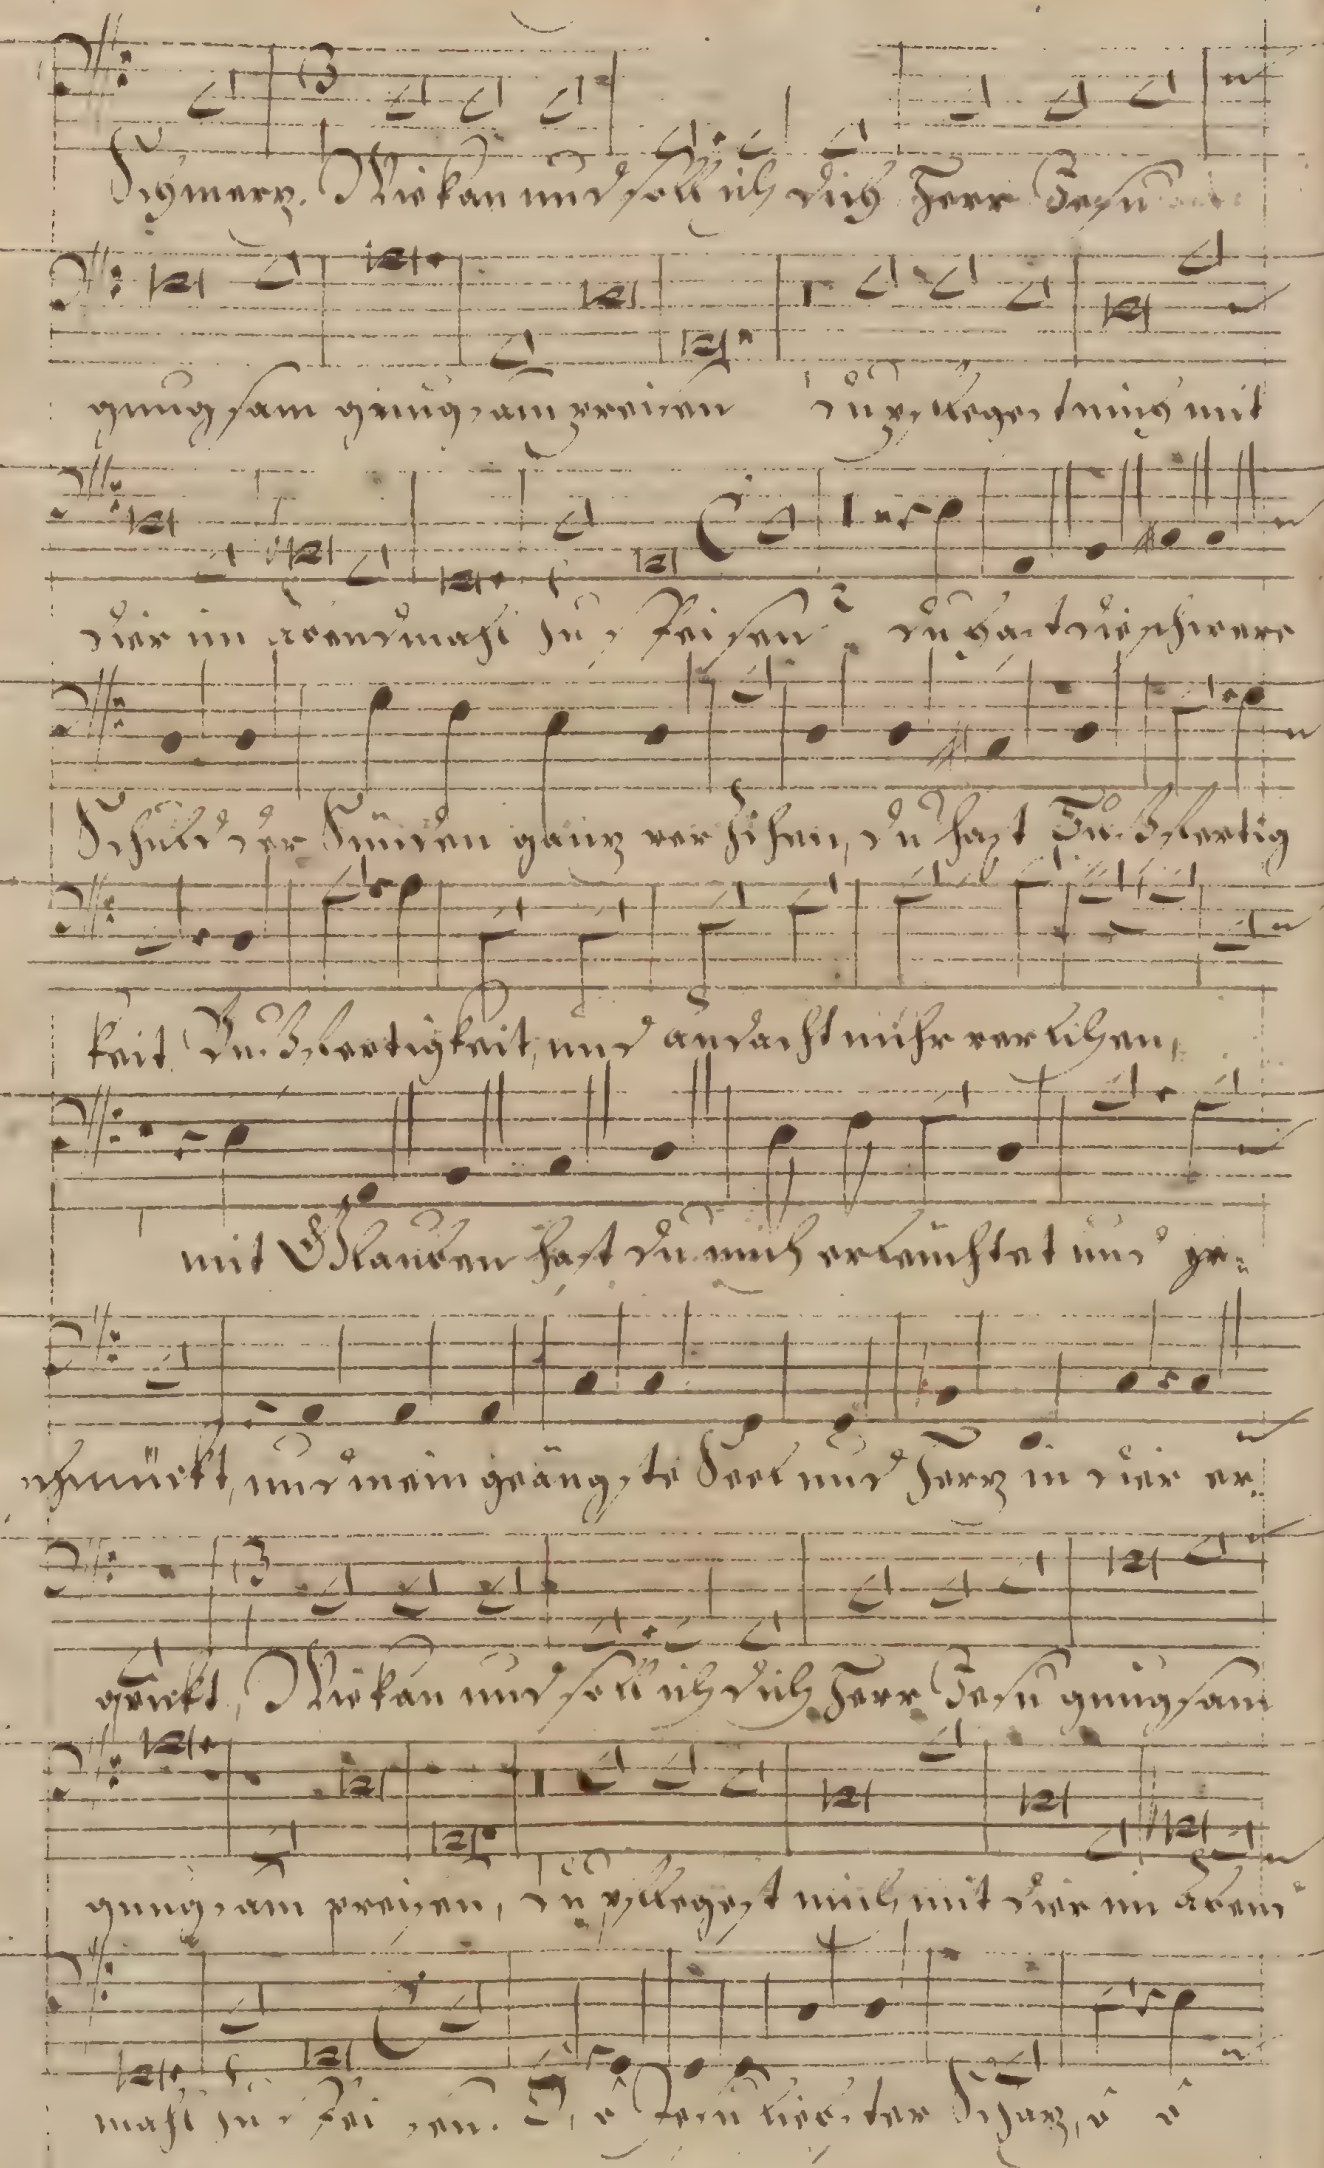 Schmerz. Wie kan und soll ich dich Herr Jesu
gnungsam gnungsam preisen du pflegest mich mit
dier im abendmahl zu speisen? du hast die schwere
Schuld der Sünden gantz verzihen, du hast Bußfertig
keit Bußfertigkeit, und andacht mihr verlihen,
mit Glauben hast du mich erleuchtet und ge-
schmückt, und mein geängste Seel und Hertz in dier er-
qvickt, Wie kan und soll ich dich Herr Jesu gnungsam
gnungsam preisen, du pflegest mich mit dier im abend
mahl zu speisen. O, o Jesu liebster Schatz, o o